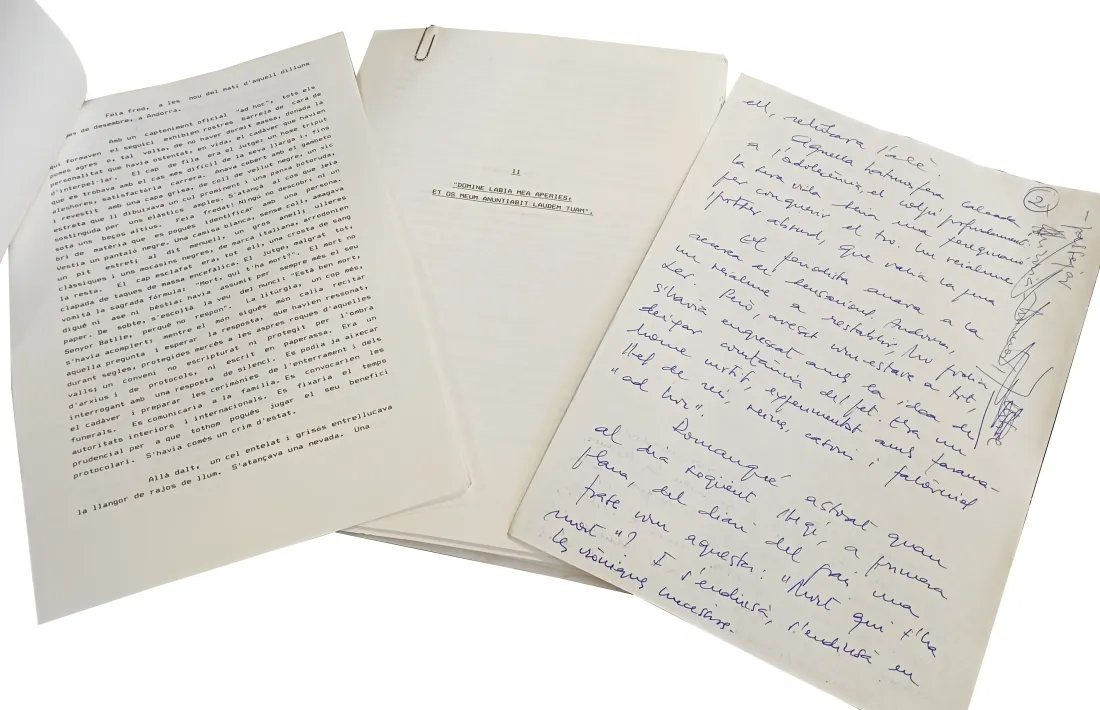 Feia fred, a les nou del matí d'aquell dilluns
mes de desembre, a Andorra.
Amb un capteniment oficial "ad hoc", tots els
qui formaven el seguici exhibien rostres barrejla de cara de
pomes agres o, tal volta, de no haver dormit massa, donada la
personalitat que havia ostentat, en vida, el cadàver que havien
d'interpel·lar. El cap de fila era el jutge; un home triput
que es trobava amb el cas més difícil de la seva llarga i, fins
aleshores, satisfactòria carrera. Anava cobert amb el gambeto
i revestit amb una capa grisa, de coll de vellut negre; un sic
estreta que li dibuixava un cul prominent i una panxa botoruda,
sostinguda per uns elàstics amples. S'alçà al cos que jeia
sota uns beços altius. Feia fredat! Ningú no descobrí ni un
bri de matèria que es pogués identificar amb una persona.
Vestia un pantaló negre. Una camisa blanca, sense coll, amagava
un pit estret; al dit menuell, un gros anell; ulleres
clàssiques i uns mocasins negres, de marca italiana, arrodonien
la resta. El cap esclafat era, tot ell, una crosta de sang
clapada de taques de massa encefàlica. El jutge, malgrat tot,
vomità la sagrada fórmula: "Mort, qui t'ha mort?". El mort no
digué ni ase ni bèstia: havia assumit per sempre més el seu
paper. De sobte, s'escoltà la veu del nunci: "Està ben mort,
Senyor Batlle, perquè no respon". La litúrgia, un cop més,
s'havia acomplert; mentre el món sigués món calia recitar
aquella pregunta i esperar la resposta, que havien ressonat,
durant segles, protegides mercès a les aspres roques d'aquelles
valls; un conveni no escripturat ni protegit per l'ombra
d'arxius i de protocols, ni escrit en paperassa. Era un
interrogant amb una resposta de silenci. Es podia ja aixecar
el cadàver i preparar les cerimònies de l'enterrament i dels
funerals. Es comunicaria a la família. Es convocarien les
autoritats interiors i internacionals. Es fixaria el temps
prudencial per a que tothom pogués jugar el seu benefici
protocolari. S'havia comès un crim d'estat.
Allà dalt, un cel entelat i grisós entrellucava
la llangor de rajos de llum. S'atançava una nevada. Una
II
"DOMINE LABIA MEA APERIES;
ET OS MEUM ANUNTIABIT LAUDEM TUAM".
2
ell, relatava l'allè.
Aquella havia fera calcada
a l'adolescència, el colpí profundament.
La seva vida seria una peregrinació
per conquerir el tro. Un reialme
potser absurd, que volia la pau
El periodista anava a la
recerca del sensacional. Andorra,
un reialme a restablir, ho podia
ser. Però, avesat com estava a tot,
s'havia engrescat amb la idea de
deixar constància del fet. Era un
home instit, experimentat amb parana-
"ad hoc".
Romangué astorat quan
al dia següent llegí, a primera
plana, del diari del país una
frase com aquesta: "Mort qui t'ha
mort"? I s'endinsà, s'endinsà en
les cròniques necessàries.